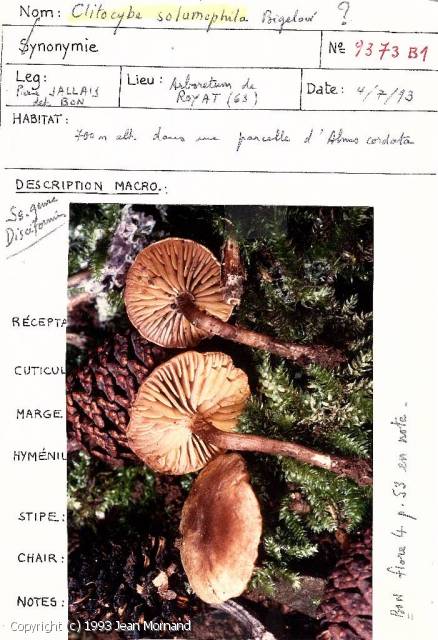 Nom: Clitocybe solumophila Bigelow ?
Synonymie
№ 9373 B1
Leg: Pierre JALLAIS
det. BON
Lieu: Arboretum de
ROYAT (63)
Date: 4/7/93
HABITAT:
700 m alt. dans une parcelle d'Alnus cordata
DESCRIPTION MACRO.:
Ss-genre
Disciformis
RÉCEPTA
CUTICUL
MARGE
HYMÉNIU
STIPE:
CHAIR:
NOTES:
BON flore 4 p. 53 en note.
Copyright (c) 1993 Jean Mornand